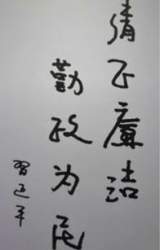 清正廉洁
勤政为民
习近平